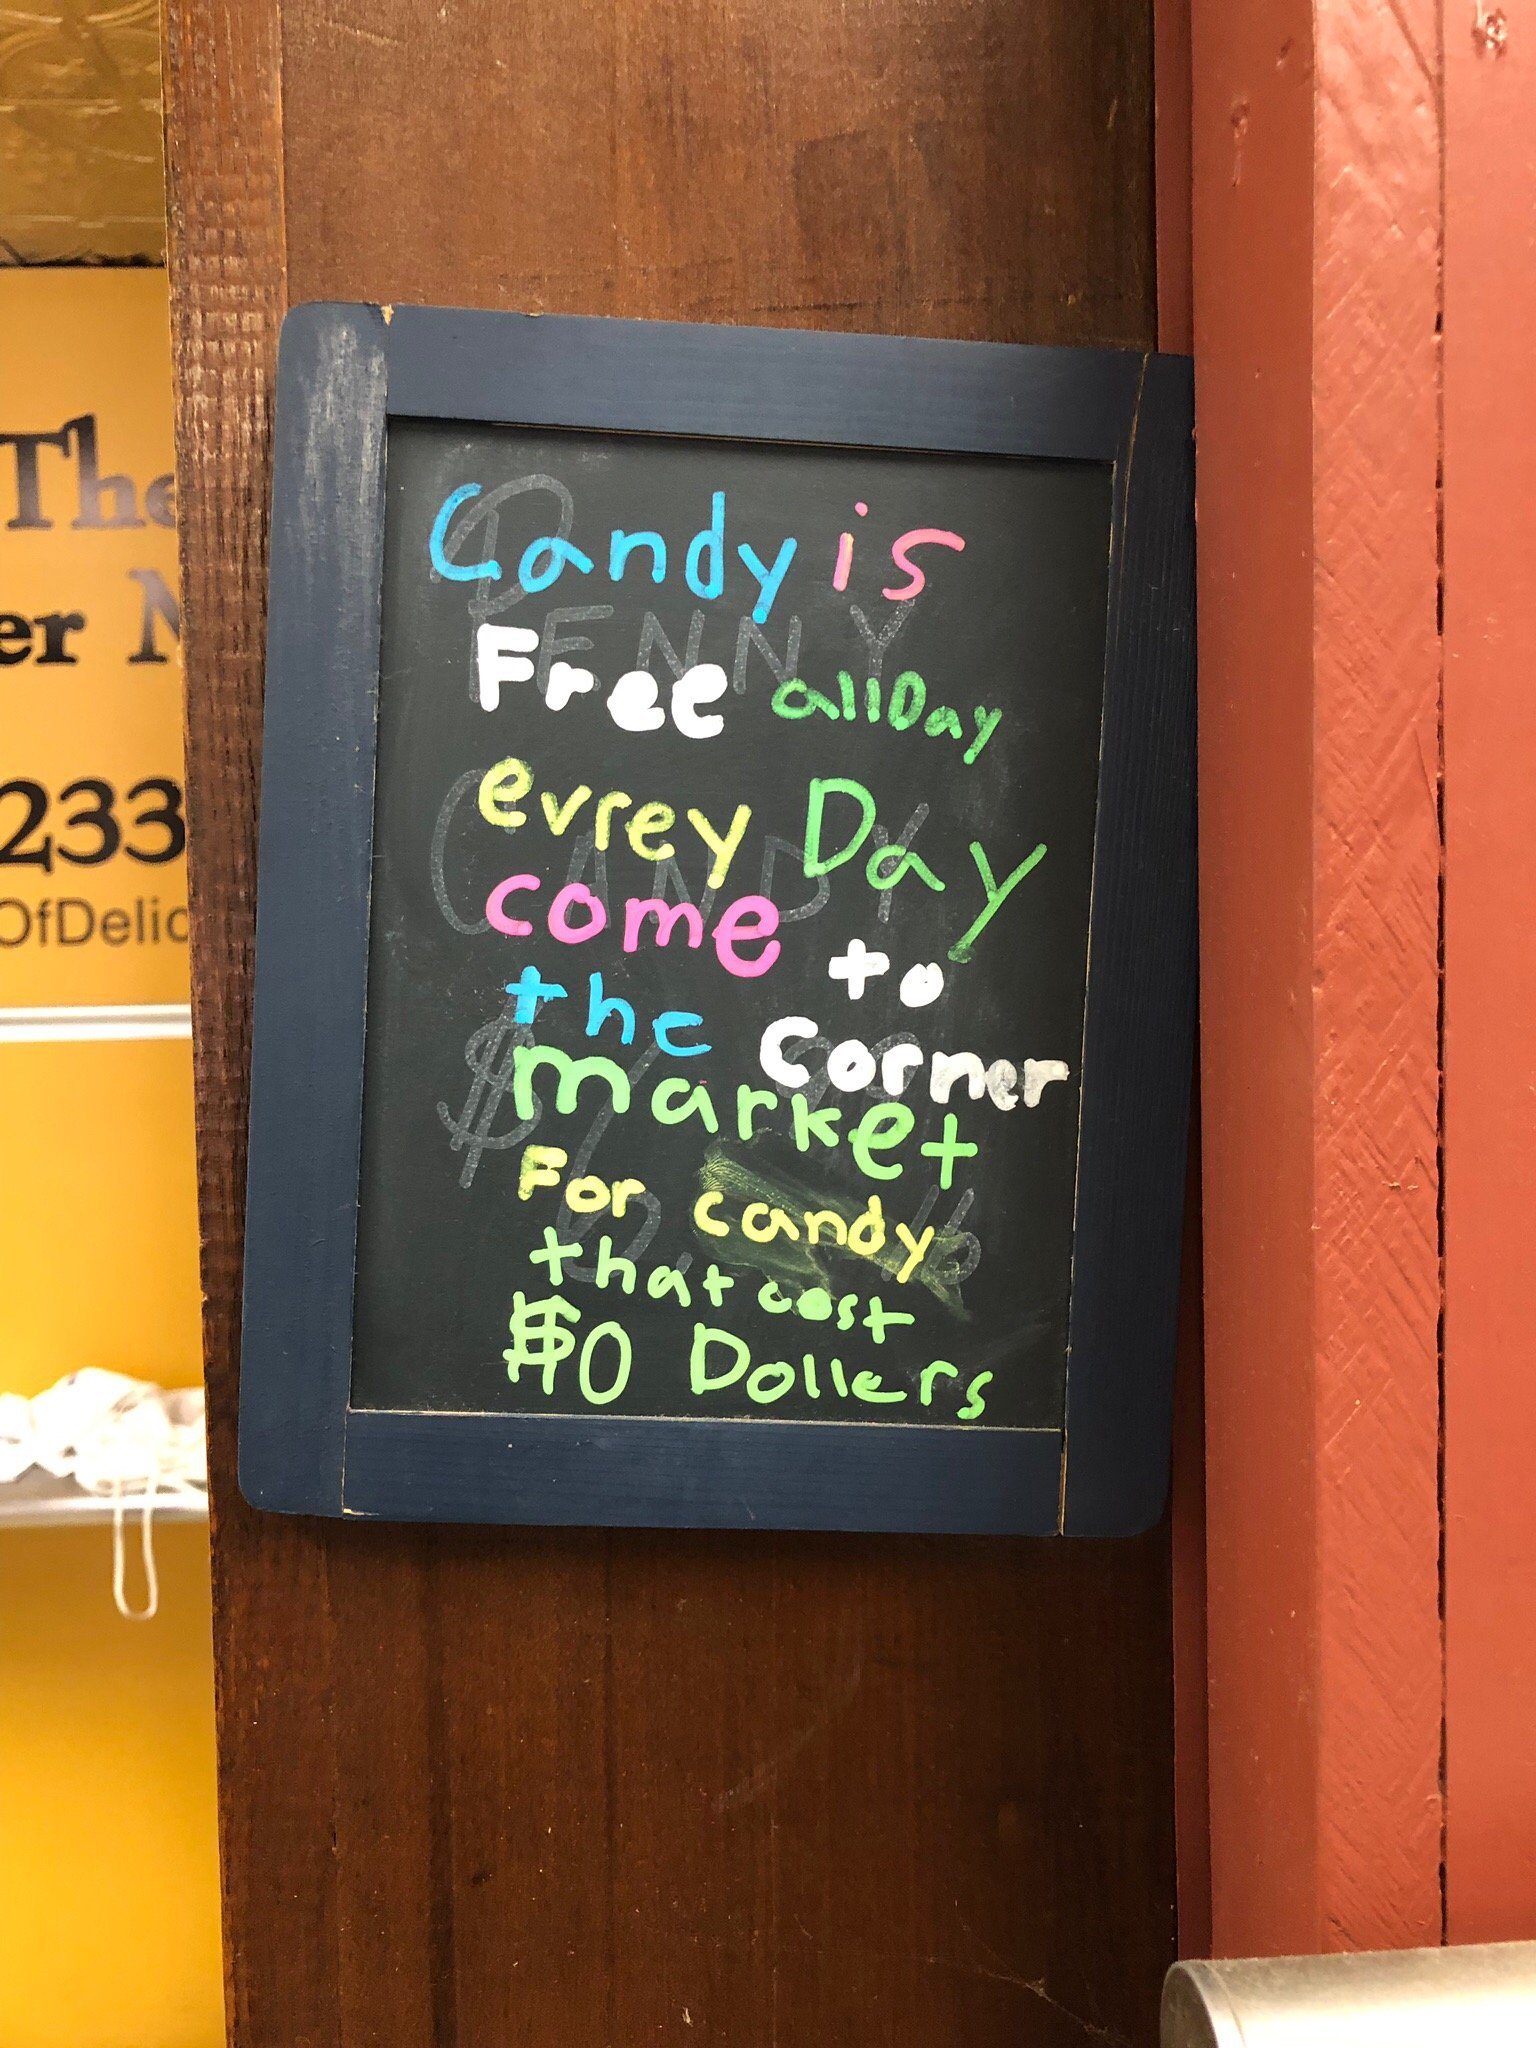 The
er
233
OfDelic
Candy is
Free allDay
evrey Day
come to
the corner
market
For candy
that cost
$0 Dollers
PENNY
CANDY